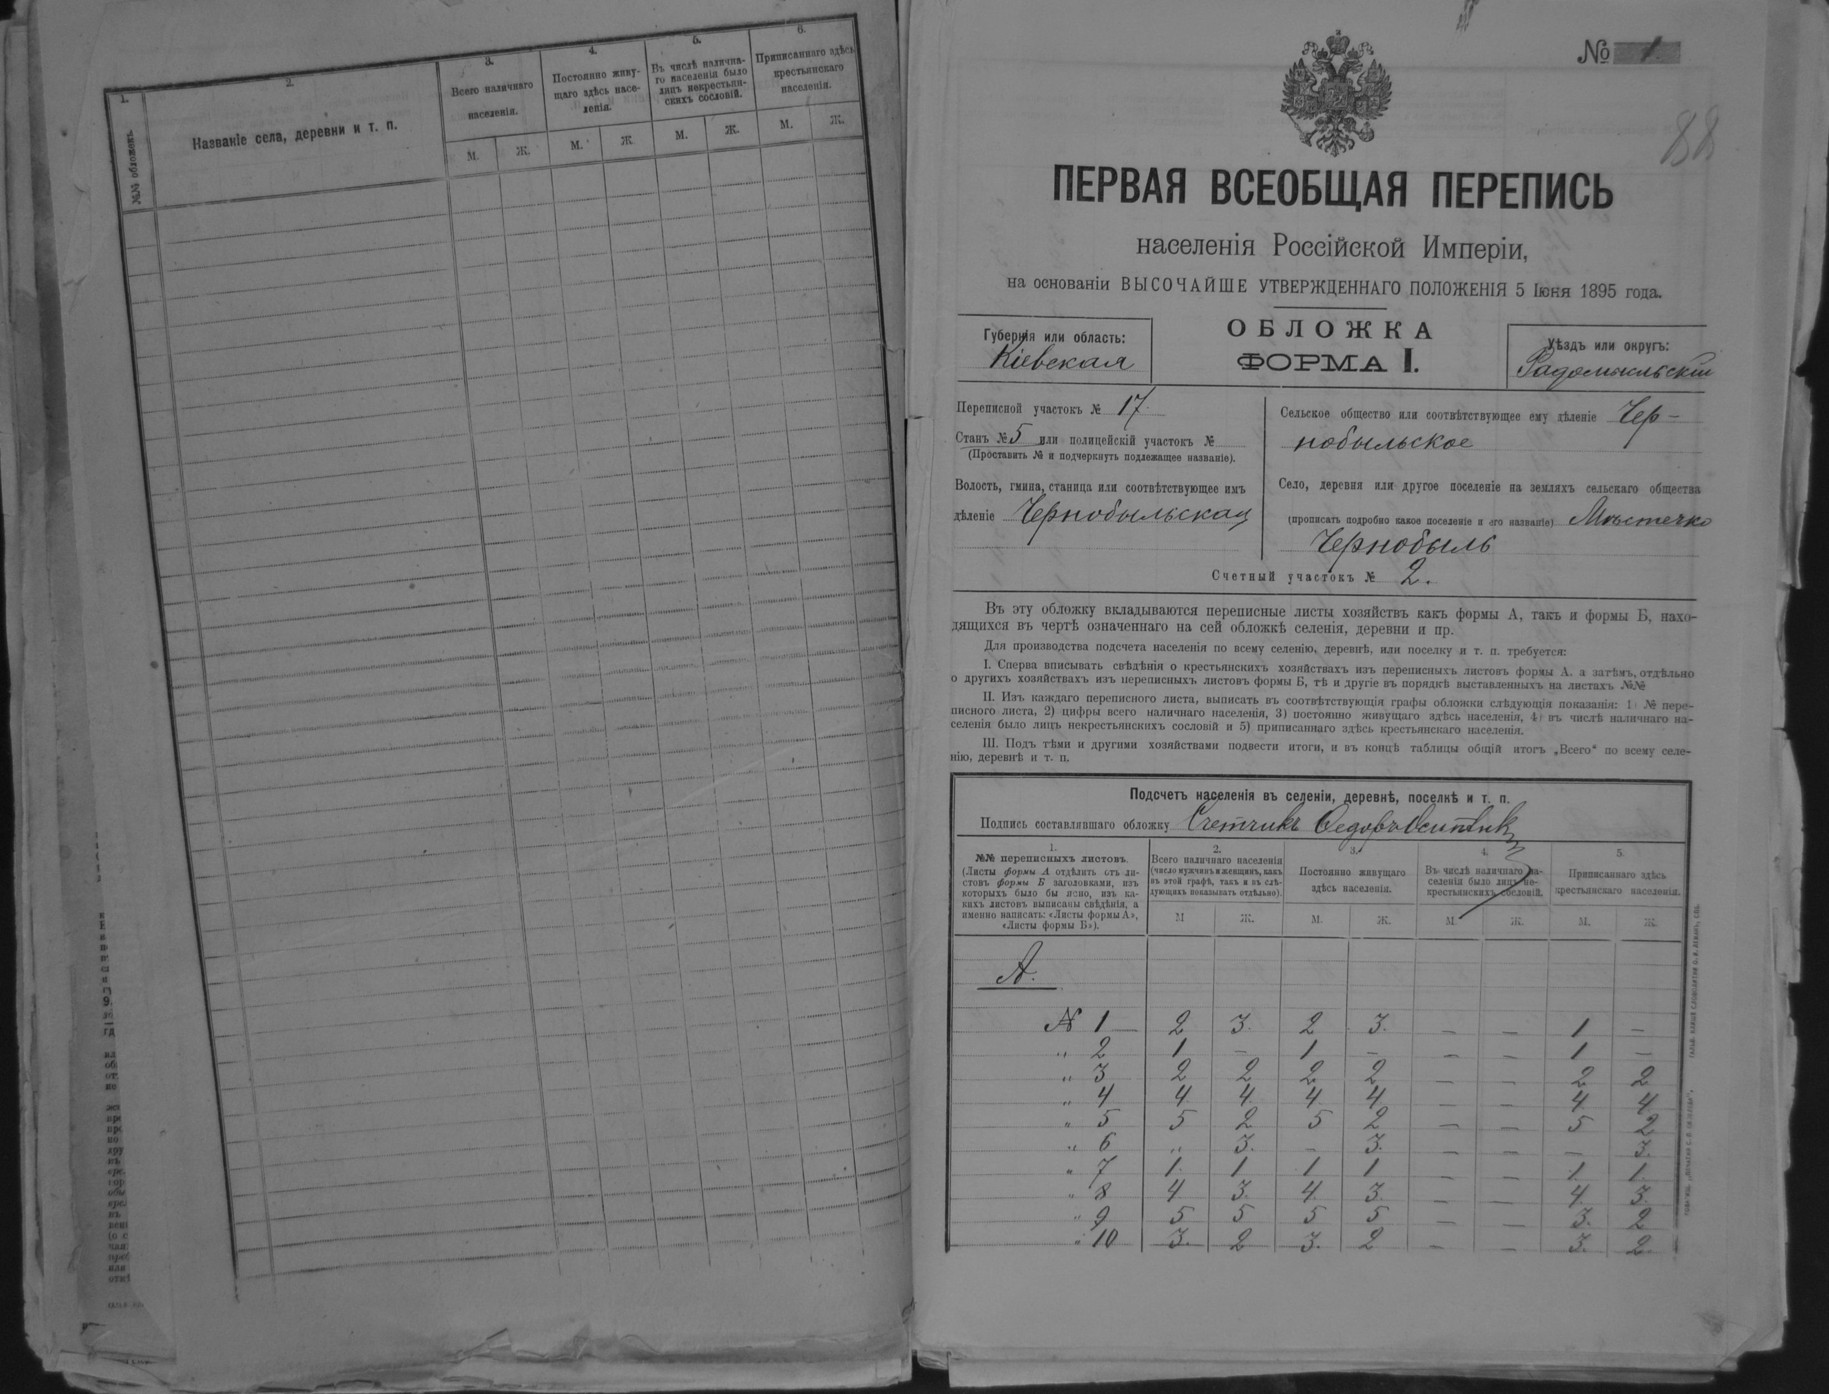 1.
2.
3.
4.
5.
6.
№№ обложекъ.
Названіе села, деревни и т. п.
Всего наличнаго
населенія.
Постоянно живу-
щаго здѣсь насе-
ленія.
Въ числѣ налична-
го населенія было
лицъ некрестьян-
скихъ сословій.
Приписаннаго здѣсь
крестьянскаго
населенія.
М. Ж. М. Ж. М. Ж. М. Ж.
№ 1.
88
ПЕРВАЯ ВСЕОБЩАЯ ПЕРЕПИСЬ
населенія Россійской Имперіи,
на основаніи ВЫСОЧАЙШЕ УТВЕРЖДЕННАГО ПОЛОЖЕНІЯ 5 Іюня 1895 года.
Губернія или область:
Кіевская
ОБЛОЖКА
ФОРМА I.
Уѣздъ или округъ:
Радомысльскій
Переписной участокъ № 17.
Станъ № 5 или полицейскій участокъ №
(Проставить № и подчеркнуть подлежащее названіе).
Волость, гмина, станица или соотвѣтствующее имъ
дѣленіе Чернобыльская
Сельское общество или соотвѣтствующее ему дѣленіе Чер-
нобыльское
Село, деревня или другое поселеніе на земляхъ сельскаго общества
(прописать подробно какое поселеніе и его названіе) Мѣстечко
Чернобыль
Счетный участокъ № 2.
Въ эту обложку вкладываются переписные листы хозяйствъ какъ формы А, такъ и формы Б, нахо-
дящихся въ чертѣ означеннаго на сей обложкѣ селенія, деревни и пр.
Для производства подсчета населенія по всему селенію, деревнѣ, или поселку и т. п. требуется:
I. Сперва вписывать свѣдѣнія о крестьянскихъ хозяйствахъ изъ переписныхъ листовъ формы А. а затѣмъ, отдѣльно
о другихъ хозяйствахъ изъ переписныхъ листовъ формы Б, тѣ и другіе въ порядкѣ выставленныхъ на листахъ №№
II. Изъ каждаго переписного листа, выписать въ соотвѣтствующія графы обложки слѣдующія показанія: 1) № пере-
писного листа, 2) цифры всего наличнаго населенія, 3) постоянно живущаго здѣсь населенія, 4) въ числѣ наличнаго на-
селенія было лицъ некрестьянскихъ сословій и 5) приписаннаго здѣсь крестьянскаго населенія.
III. Подъ тѣми и другими хозяйствами подвести итоги, и въ концѣ таблицы общій итогъ „Всего“ по всему селе-
нію, деревнѣ и т. п.
Подсчетъ населенія въ селеніи, деревнѣ, поселкѣ и т. п.
Подпись составлявшаго обложку Счетчикъ Федоръ
1.
№№ переписныхъ листовъ.
(Листы формы А отдѣлить отъ ли-
стовъ формы Б заголовками, изъ
которыхъ было бы ясно, изъ ка-
кихъ листовъ выписаны свѣдѣнія, а
именно написать: «Листы формы А»,
«Листы формы Б»).
2.
Всего наличнаго населенія
(число мужчинъ и женщинъ, какъ
въ этой графѣ, такъ и въ слѣ-
дующихъ показывать отдѣльно).
3.
Постоянно живущаго
здѣсь населенія.
4.
Въ числѣ наличнаго на-
селенія было лицъ не-
крестьянскихъ сословій.
5.
Приписаннаго здѣсь
крестьянскаго населенія.
М Ж. М. Ж. М. Ж. М. Ж.
А.
№ 1 — 2 3. 2 3. — — 1 —
„ 2 1 — 1 — — — 1 —
„ 3 2 2 2 2 — — 2 2
„ 4 4 4 4 4 — — 4 4
„ 5 5 2 5 2 — — 5 2
„ 6 „ 3. — 3. — — — 3.
„ 7 1. 1 1 1 — — 1. 1.
„ 8 4. 3. 4. 3. — — 4. 3.
„ 9 5 5 5 5 — — 3. 2
„ 10 3. 2 3. 2 — — 3. 2.